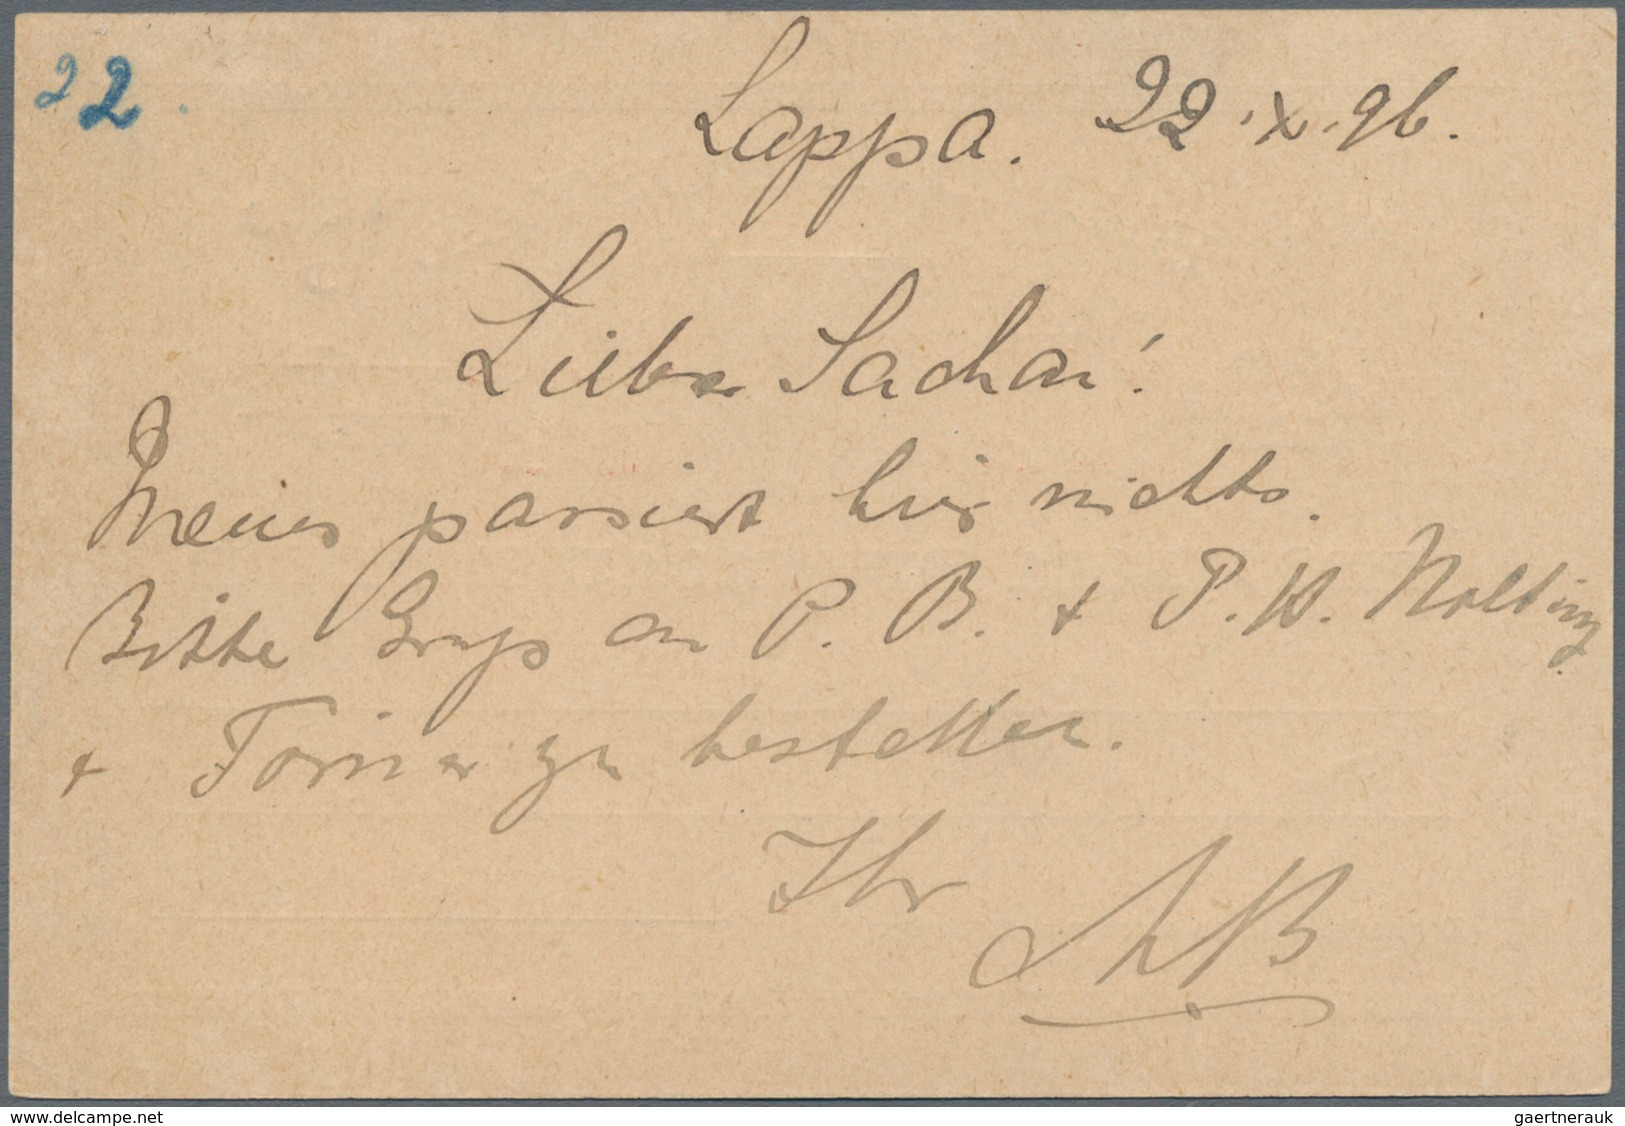 22.
Lappa. 22.X.96.
Lieber Sachau!
Neues passiert hier nichts.
Bitte Gruss an P. B. + P. W. Nolting
+ zu bestellen.
Ihr AB
www.delcampe.net
gaertnerauk